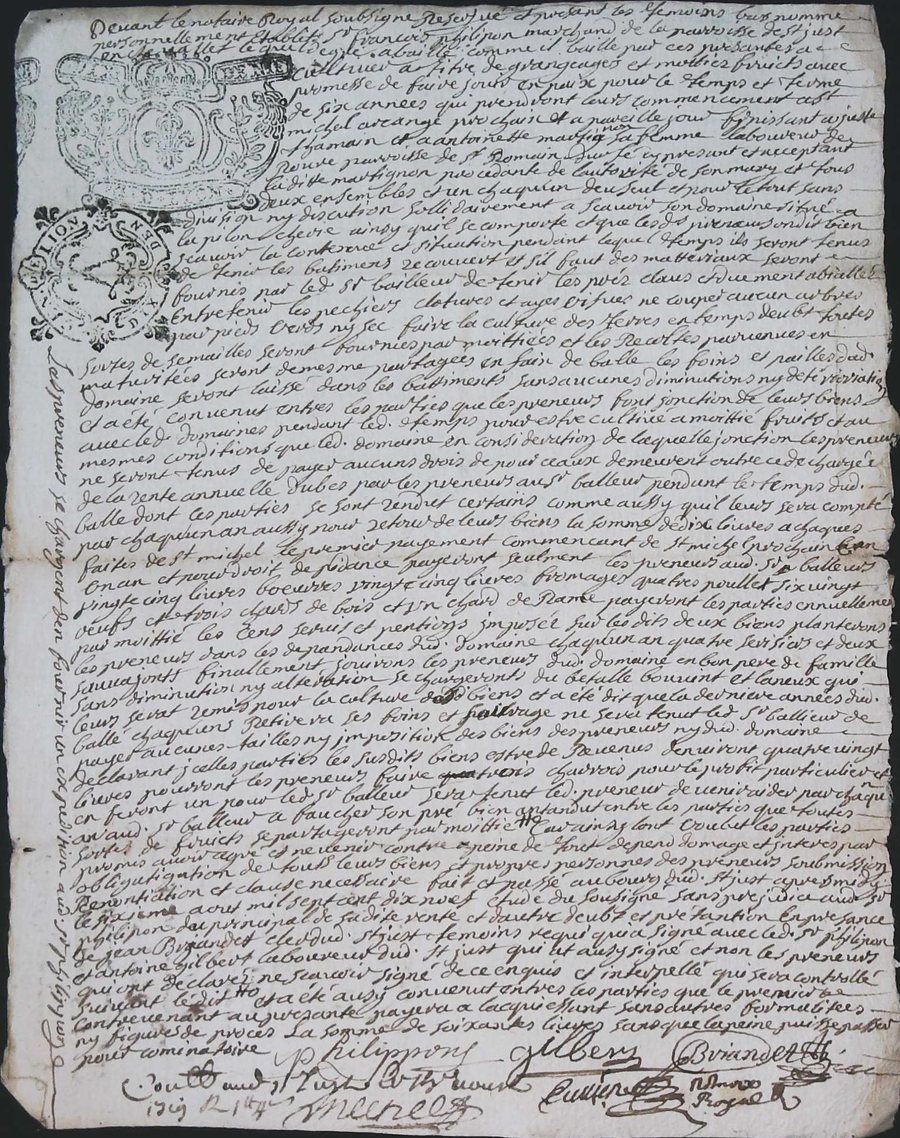 Devant le notaire Royal soubsigné Reservé et presant les temoins bas nommé
personnellement Etablit Sr François philipon marchand de la parroisse de st just
en chevallet lequel de gré a baillé comme il baille par ces presantes a
cultiver a titre de grangeages et moitiés fruicts avec
promesse de faire jouir en paix pour le temps et terme
de six années qui prendront leurs commencement a st
michel arcange prochain et a pareille jour finissant a
et a antoinette sa femme laboureur de
parroisse de st Romain cy presant et acceptant
laditte procedante de lautorité de son mary et tous
deux ensembles et un chaquun deux seul et pour le tout sans
division ny discution sollidairement a scavoir son domaine situé a
la pilon chevre ainsy quil se comporte et que lesds preneurs ont dit bien
scavoir la contenue et situation pendant laquel temps ils seront tenus
de tenir les batimens recouvert et sil faut des matteriaux seront
fournis par led Sr bailleur de tenir les prés claus et duement
Entretenir les clotures et ne couper aucun arbres
par pieds verds ny sec faire la culture des terres en temps deubt toutes
sortes de semailles seront fournies par moittiées et les Recoltes parvenues en
maturitées seront demesme partagées en fain de balle les foins et pailles dud
domaine seront laissé dans les battiments sans aucunes diminutions ny deterioriation
et a été convenut entres les parties que les preneurs font jonction de leurs biens
avec led domaines pendant led temps pour estre cultivé a moittié fruits et au
mesmes conditions que led domaine en consideration de laquelle jonction les preneurs
ne seront tenus de payer aucuns drois de pourceaux demeurent outre ce decharge
de la rente annuelle dubes par les preneurs aud Sr balleur pendant le temps dud
balle dont les parties se sont rendut certains comme aussy quil leurs sera compté
par chaquun an aussy pour retour de leurs biens la somme de dix livres a chaques
faites de st michel le premier payement commencant de st michel prochain En un
en an et pour droit de pidance payeront seulment les preneurs aud Sr balleurs
vingt cinq livres boeurres vingt cinq livres fromages quatres poullet six vingt
oeufs et trois chards de bois et un chard de Rame payeront les parties ennuellement
par moittié les cens servis et pentions imposez sur les dits deux biens planterons
les preneurs dans les dependances dud domaine chaquun an quatre serisiers et deux
sauvajonts finallement jouirons les preneurs dud domaine en bon pere de famille
sans diminution ny alteration se chargeronts du betalle bouvint et laneux qui
leurs serat remis pour la culture desd biens et a été dit que la derniere années dud
balle chaquuns Retirera ses foins et paillage ne sera tenut led Sr ballieur de
payer aucunes tailles ny imposition des biens des preneurs ny dud domaine
declarant jcelles parties les susdits biens estre de Revenus denviront quatre vingt
livres pouront les preneurs faire trois charrois pour le profit particulier et
en feront un pour led Sr balleur sera tenut led preneur de venir aider par chaqun
an aud Sr balleur a faucher son pré bien entandut entre les parties que toutes
sortes de fruicts se partageront par moittié Car ainsy lont voulut les parties
promis avoir agré et ne venir contre a peine de tout depend domage et interes par
obligatigation de tous leurs biens et propres personnes des preneurs soubmission
Renontiation et clause necessaire fait et passé au bourg dud St just apres midy
le sixieme aout mil sept cent dix noef etude du sousigné sans prejudice aud Sr
philipon du principal de sadite rente et dautre deubt et pretantion En presance
de Jean Briandet clerc dud St just temoins requi qui a signé avec led Sr philipon
et antoine gilbert laboureur dud St just qui at ausy signé et non les preneurs
qui ont declaré ne scavoir signé de ce enquis et interpellé qui sera controllé
suivant ledit et a été ausy convenut entres les parties que le premier
contrevenant au presante payera a lacquiessant sans autres formalitées
ny figures de procés La somme de soixantes livres sans que la peine puisse passer
pour cominatoire
Philippons Gilbert Briandet
Royal
Les preneurs se chargent den fournir un expedition aud Sr philipon